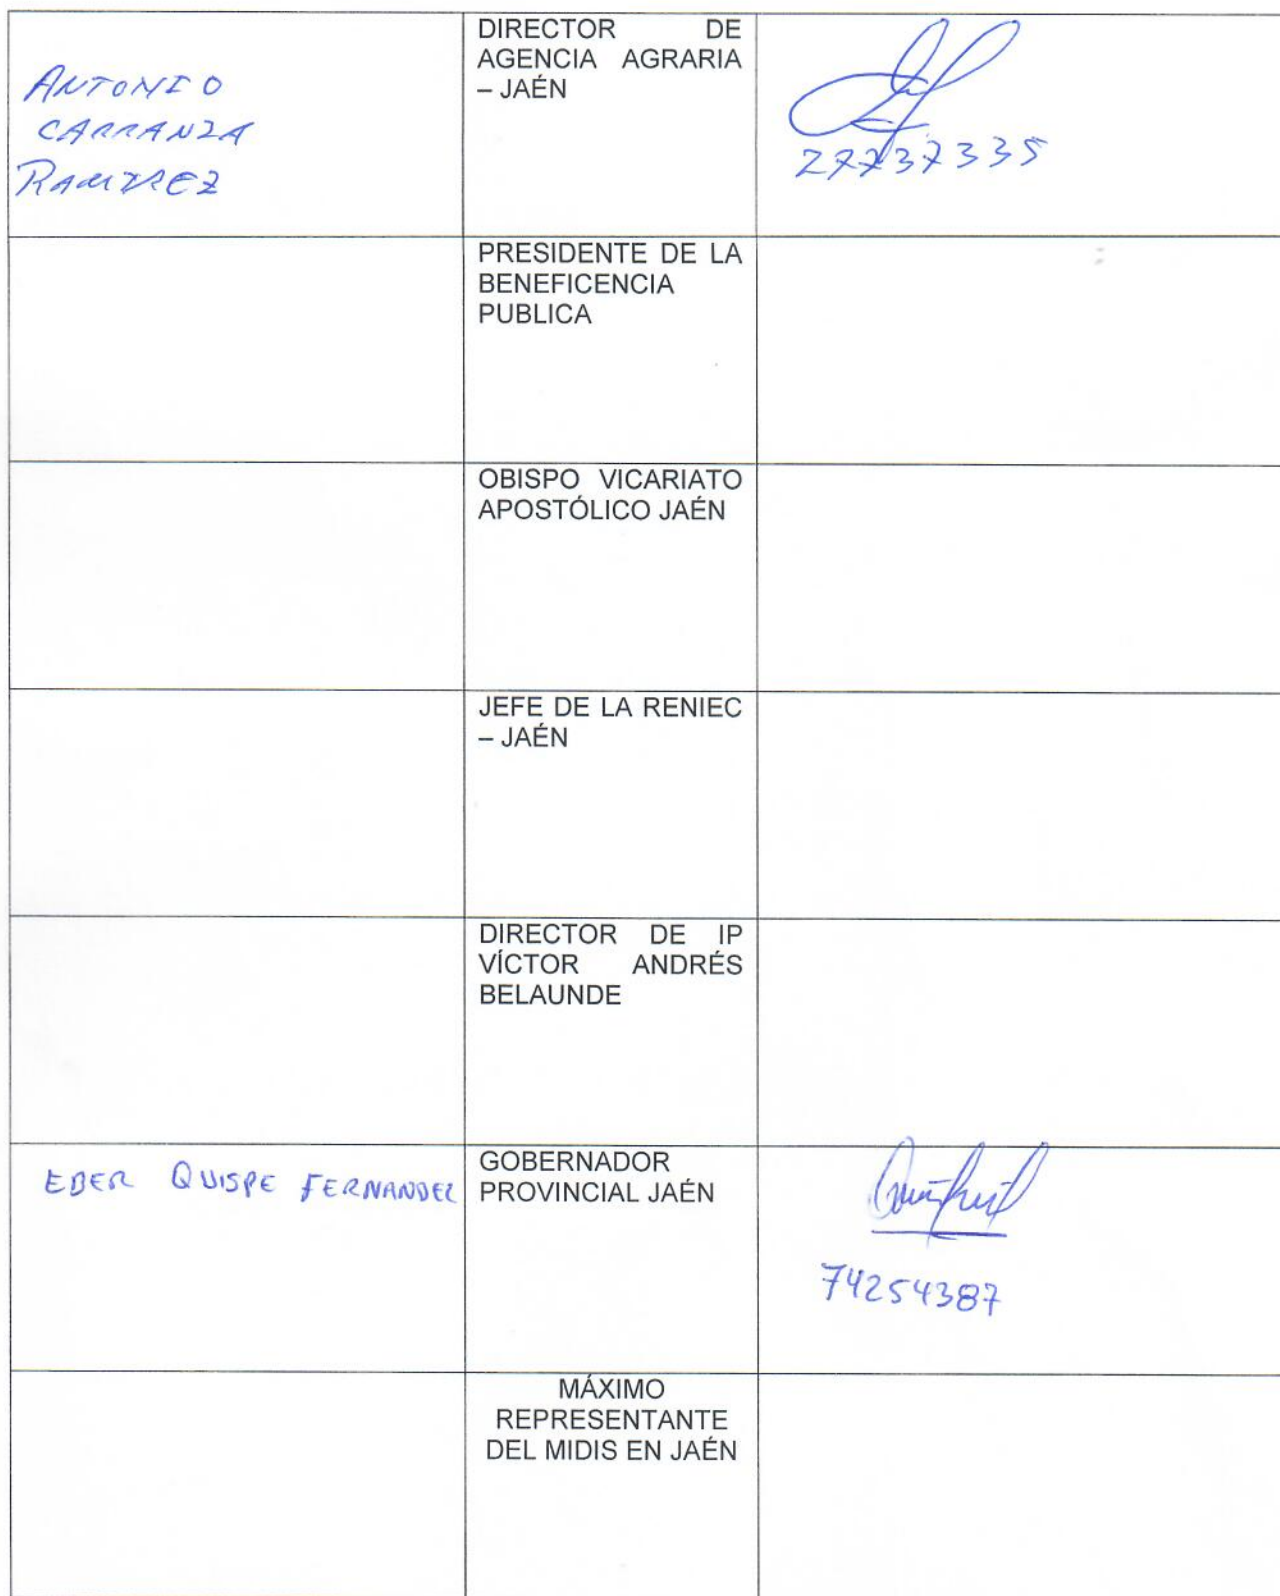 ANTONIO
CARRANZA
RAMIREZ
DIRECTOR DE
AGENCIA AGRARIA
– JAÉN
27737335
PRESIDENTE DE LA
BENEFICENCIA
PUBLICA
OBISPO VICARIATO
APOSTÓLICO JAÉN
JEFE DE LA RENIEC
– JAÉN
DIRECTOR DE IP
VÍCTOR ANDRÉS
BELAUNDE
EBER QUISPE FERNANDEZ
GOBERNADOR
PROVINCIAL JAÉN
74254387
MÁXIMO
REPRESENTANTE
DEL MIDIS EN JAÉN